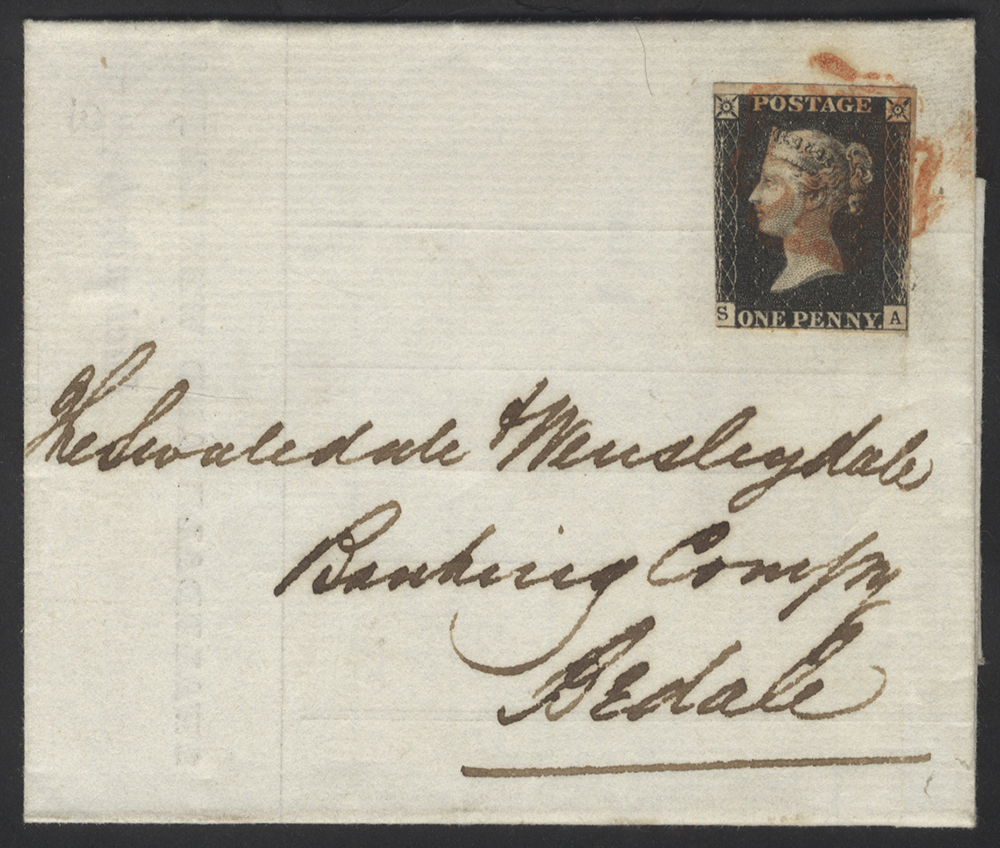 POSTAGE
S ONE PENNY. A
The Swaledale & Wensleydale
Banking Compy
Bedale